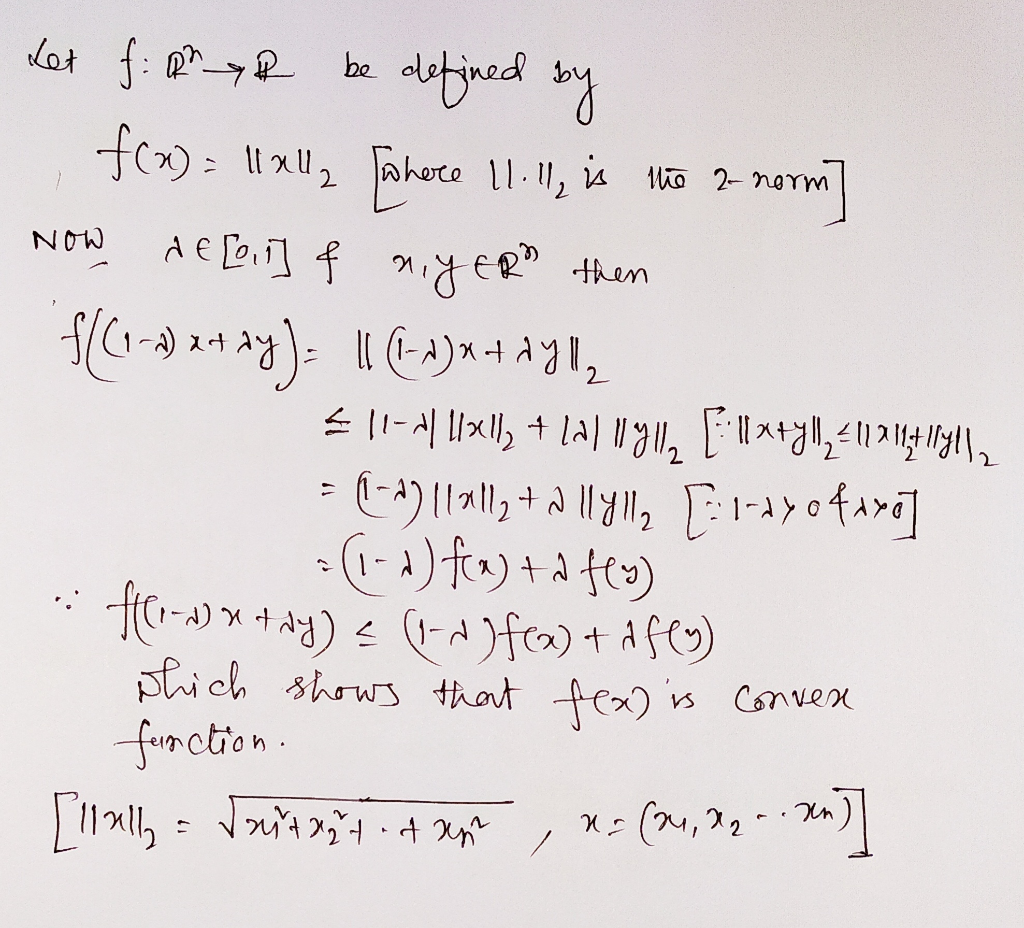 Let f: ℝⁿ → ℝ be defined by
f(x) = ||x||₂ [where ||.||₂ is the 2-norm]
NOW λ ∈ [0,1] & x, y ∈ ℝⁿ then
f((1-λ)x + λy) = ||(1-λ)x + λy||₂
≤ |1-λ| ||x||₂ + |λ| ||y||₂ [∵ ||x+y||₂ ≤ ||x||₂ + ||y||₂
= (1-λ)||x||₂ + λ||y||₂ [∵ 1-λ > 0 & λ > 0]
= (1-λ) f(x) + λ f(y)
∵ f((1-λ)x + λy) ≤ (1-λ)f(x) + λf(y)
which shows that f(x) is convex
function.
[||x||₂ = √x₁² + x₂² + .. + xₙ² , x = (x₁, x₂ .. xₙ)]